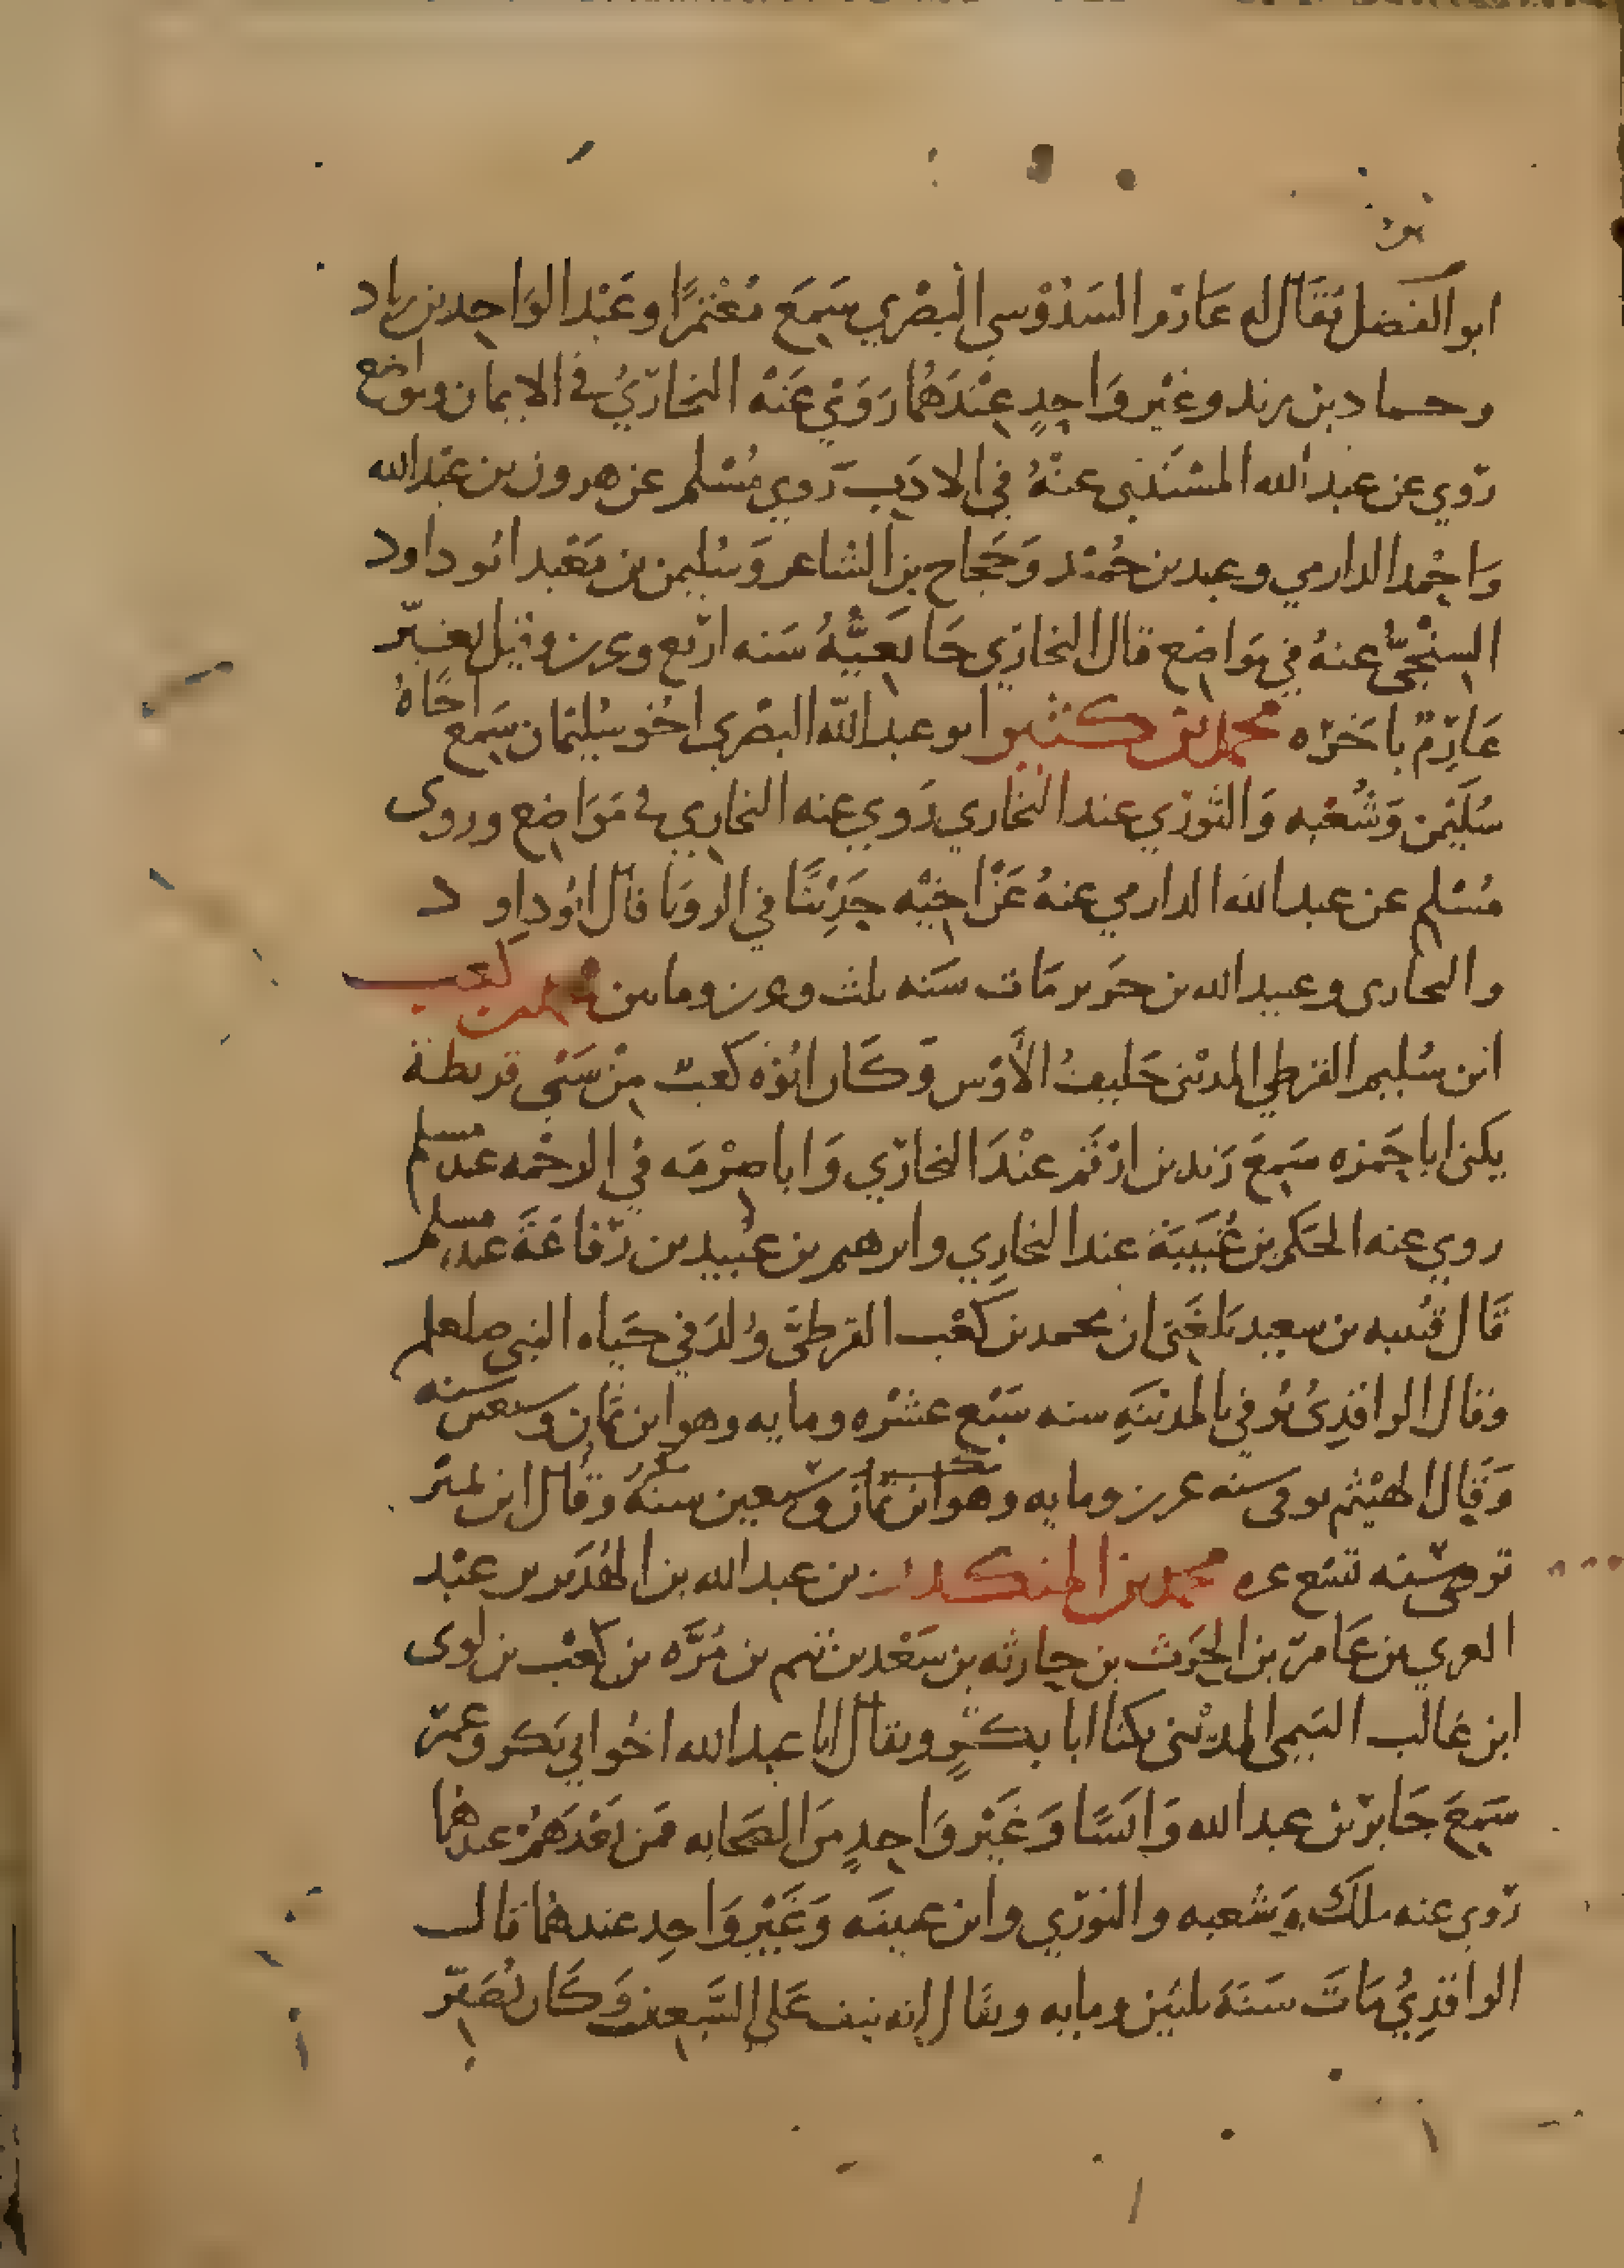 ابو الفضل يقال له عَارم السَدُوْسي البصْري سَمِعَ مُعْتمرًا وعَبْد الوَاحِد بن زياد
وحماد بن زيد وغَيْر وَاحِدٍ عِنْدَهُمَا رَوَيْ عَنْهُ البخَاريُ في الايمان ومواضع
رَوي عن عبد الله المسْنَدي عنْهُ في الادَب رَوي مُسْلم عن هرون بن عبْد الله
وَاحْمد الدارمي وعبد بن حُمَيْد وَحَجاج بن الشاعر وَسُليمن بن مَعْبد ابو داود
السِنْجيُّ عنهُ في مَوَاضِع قال البخاري جَا نعَيُّهُ سَنه ارْبع وعرىن وقيل تغيّر
عَارِمٌ باخَرَه محمد بن كثير ابو عبد الله البصْري اخُو سُليمان سَمِع اخَاهُ
سُلَيمن وَشُعْبه وَالثوري عند البخاري رَوي عنه البخاري في مَوَاضِع وروى
مُسْلم عن عبد الله الدارمي عنهُ عَنْ اخِيْه حَدِيْثًا في الرويَا قال ابُو داود
والبخارى وعبيد الله بن جَرير مَات سَنه ثلث وعرىن ومايىن محمد بن كعب
ابن سُليم القرظي المدَني حَليفُ الأَوْس وَكَان ابُوْه كعبٌ مِنْ سَبْي قريظة
يكنى ابا حَمْزه سَمِعَ زَيد بن ارْقَم عنْدَ البخاري وَابا صِرْمَه في الرحْمه عند مسلم
روي عنه الحَكم بن عُتَيْبَة عند البخاري وابرهيم بن عُبيد بن رفَاعَة عند مسلم
قَال قتيبه بن سعيد بَلغَني ان محمد بن كعْب القرظيّ وُلدَ في حَيَاه النبي صلعم
وقال الواقدِىُ تُوفي بالمديْنَهِ سنه سَبْع عشْره ومايه وهو ابن ثمان وسبعين سنه
وَقَال الهيْثم توفى سنه عرىن ومايه وهو ابن ثمان وسبعين سنهُ وقَال ابن نمير
توفى سَنه تسْع عره محمد بن المنكدر بن عبد الله بن الهُدَير بن عبْد
العزي بن عَامر بن الحَرث بن حارثه بن سَعْد بن تيم بن مُرَّه بن كعْب بن لوى
ابن غالب التيمي المدني يكنا ابا بكْرٍ ويقال ابا عبد الله اخُو ابي بَكر وعمر
سَمِعَ جَابر بن عبد الله وَانَسًا وَغَيْر وَاحِدٍ مِنَ الصَحَابه فمَن بَعْدَهُمْ عندهما
رَوي عنه ملك وَشعبه والثوري وابن عيينَه وَغَيْر وَاحِد عندهُمَا قال
الواقديُ مَاتَ سَنَة ثلثين ومايه ويقَال انه نيف عَلي السَبعين وَكَان يُصَفّر